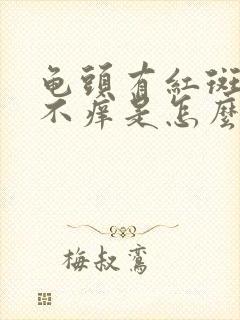 龟頭有紅斑
不痒是怎麼
梅叔鸞